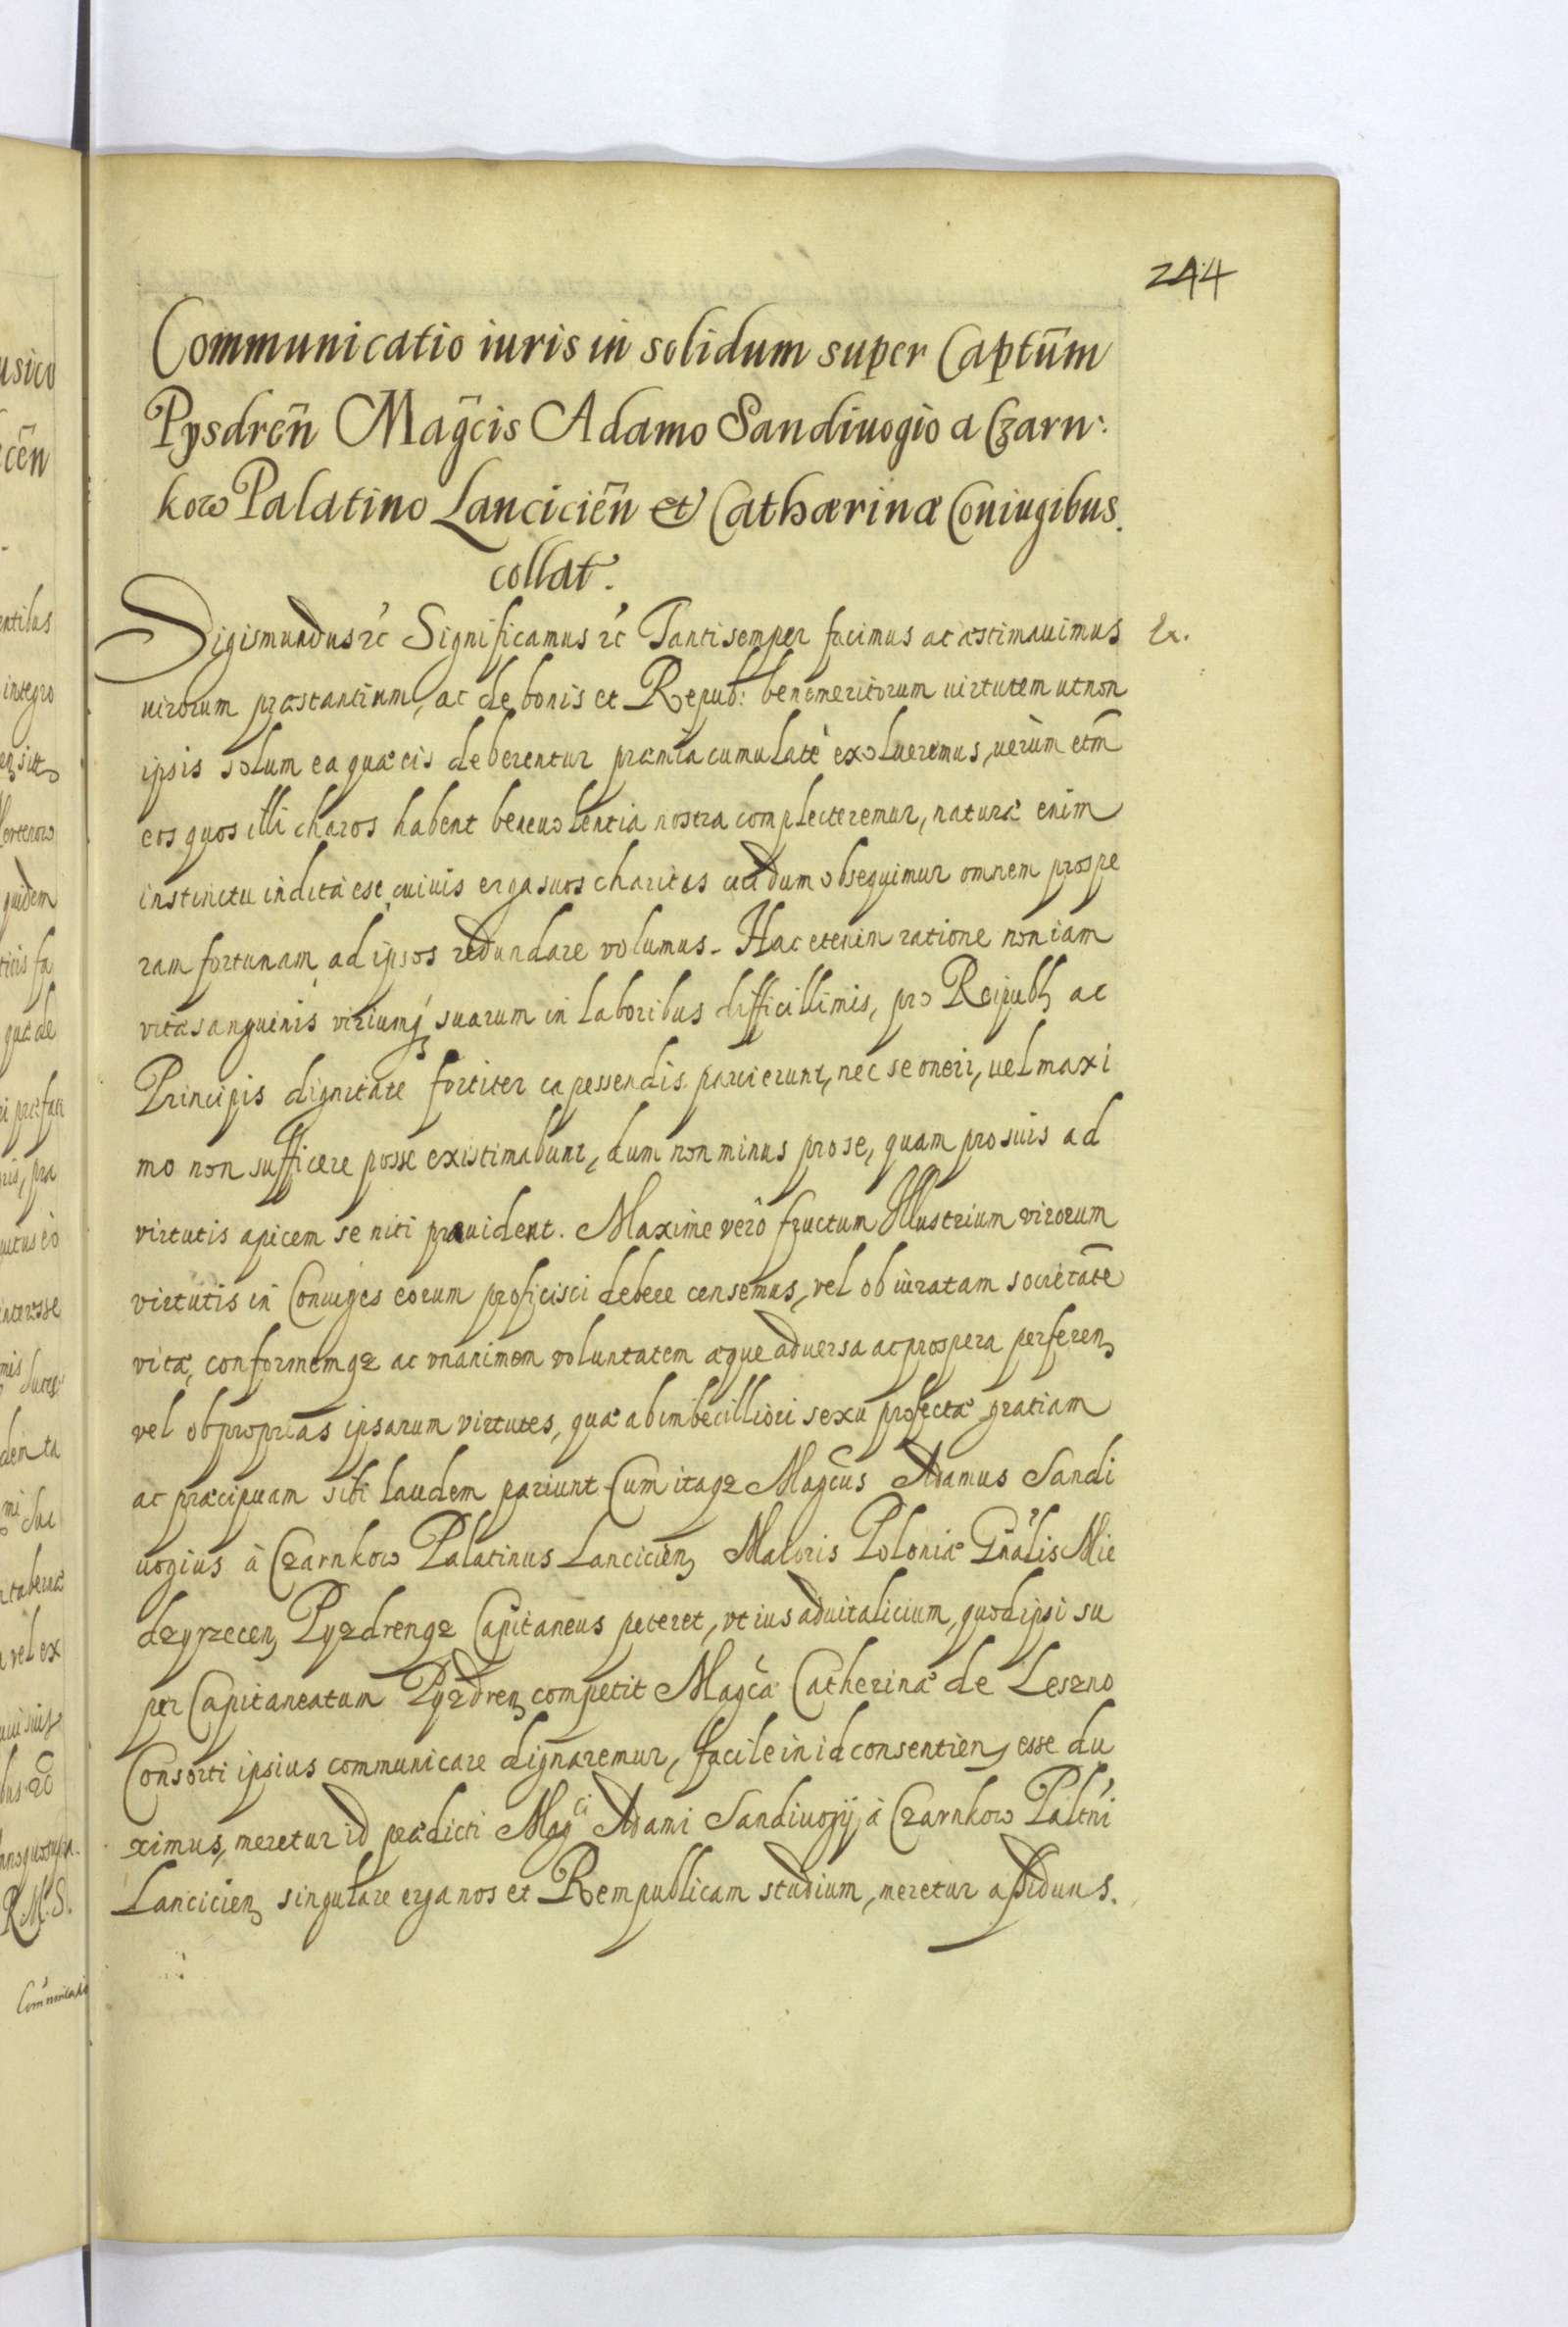 244
Communicatio iuris in solidum super Captūm
Pysdreñ Mag̃cis Adamo Sandiuogio a Czarn:
kow Palatino Lancicieñ et Cathærinæ Coniugibus.
collat.
Sigismundus &c Significamus &c Tanti semper fecimus ac æstimauimus
uirorum præstantium, ac de bonis et Repub: benemeritorum uirtutem ut non
ipsis solum ea quæ eis deberentur præmia cumulatè exolueremus, uerùm etm̃
eos quos illi charos habent beneuolentia nostra complecteremur, naturæ enim
instinctu indita est cuiuis erga suos charitas cui dum obsequimur omnem prospe
ram fortunam ad ipsos redundare volumus. Hac etenim ratione non iam
vitæ sanguinis viriumq́ȝ suarum in laboribus difficillimis, pro Reipubl ac
Principis dignitate fortiter capessendis parcierunt, nec se oneri, uel maxi
mo non sufficere posse existimabunt, dum non minus pro se, quam pro suis ad
virtutis apicem se niti præuident. Maxime verò fructum Illustrium virorum
virtutis in Coniuges eorum proficisci debere censemus, vel ob iuratam societatē
vitæ, conformemqȝ ac vnanimem voluntatem æque aduersa ac prospera perferen
vel ob proprias ipsarum virtutes, quæ ab imbecilliori sexu profectæ gratiam
ac præcipuam sibi laudem pariunt. Cum itaqȝ Magcus Adamus Sandi
uogius à Czarnkow Palatinus Lancicien Maioris Poloniæ Gnãlis Mie
dzyrzecen Pyzdrenqȝ Capitaneus peteret, vt ius aduitalicium, quod ipsi su
per Capitaneatum Pyzdren competit Magcæ Catherinæ de Leszno
Consorti ipsius communicare dignaremur, facile in id consentien esse du
ximus, meretur id prædicti Magci Adami Sandiuogij à Czarnkow Paltni
Lancicien singulare erga nos et Rempublicam studium, meretur assiduus.